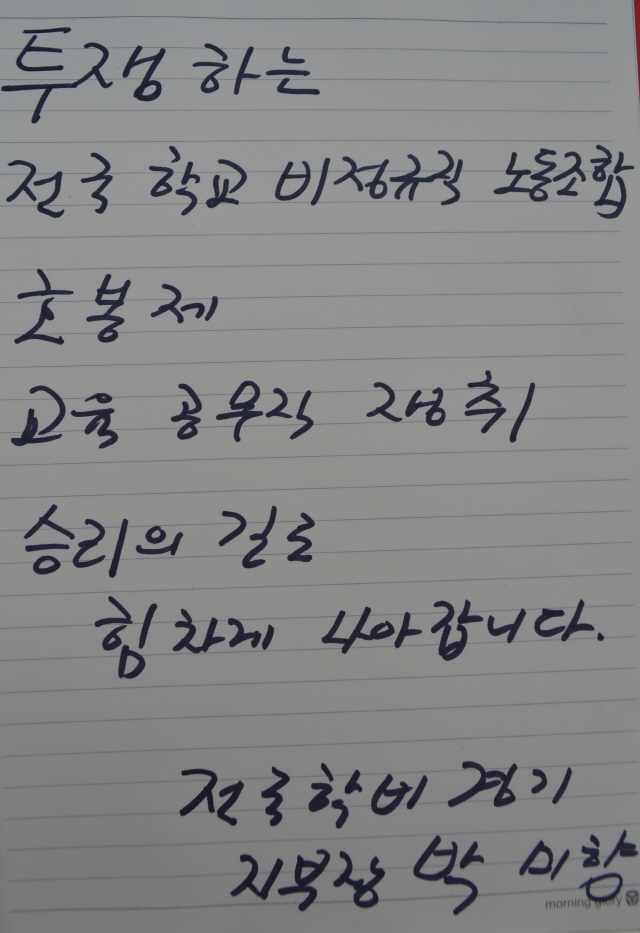 투쟁 하는
전국 학교 비정규직 노동조합
호봉제
교육 공무직 쟁취
승리의 길로
힘차게 나아갑니다.
전국학비 경기
지부장 박미향
morning glory